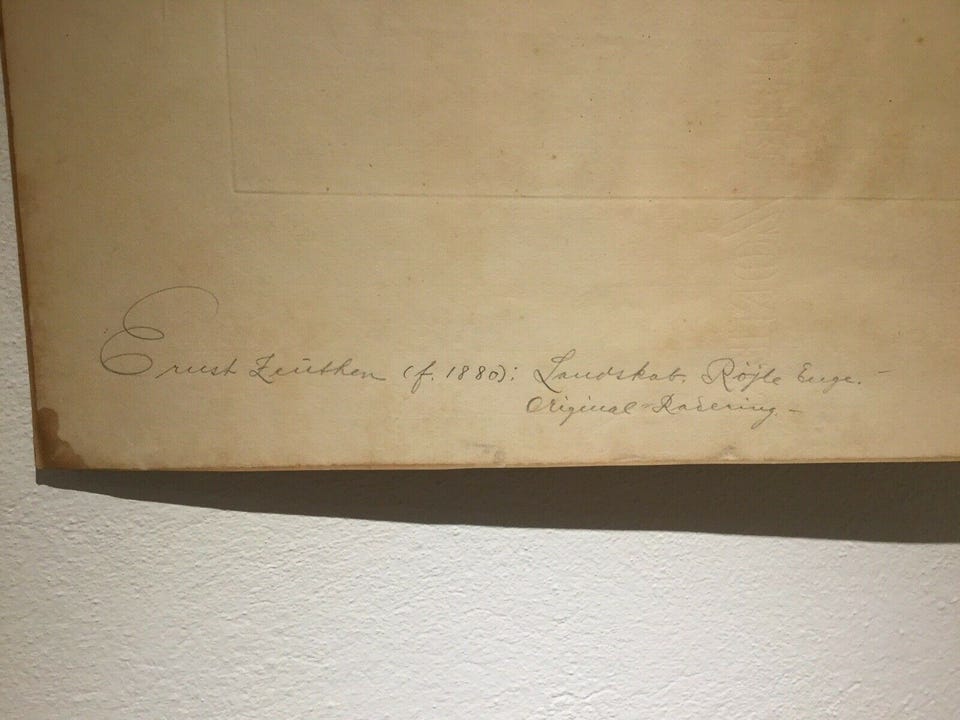 Ernst Zeuthen (f. 1880): Landskab. Röjle Enge. –
Original-Radering. –